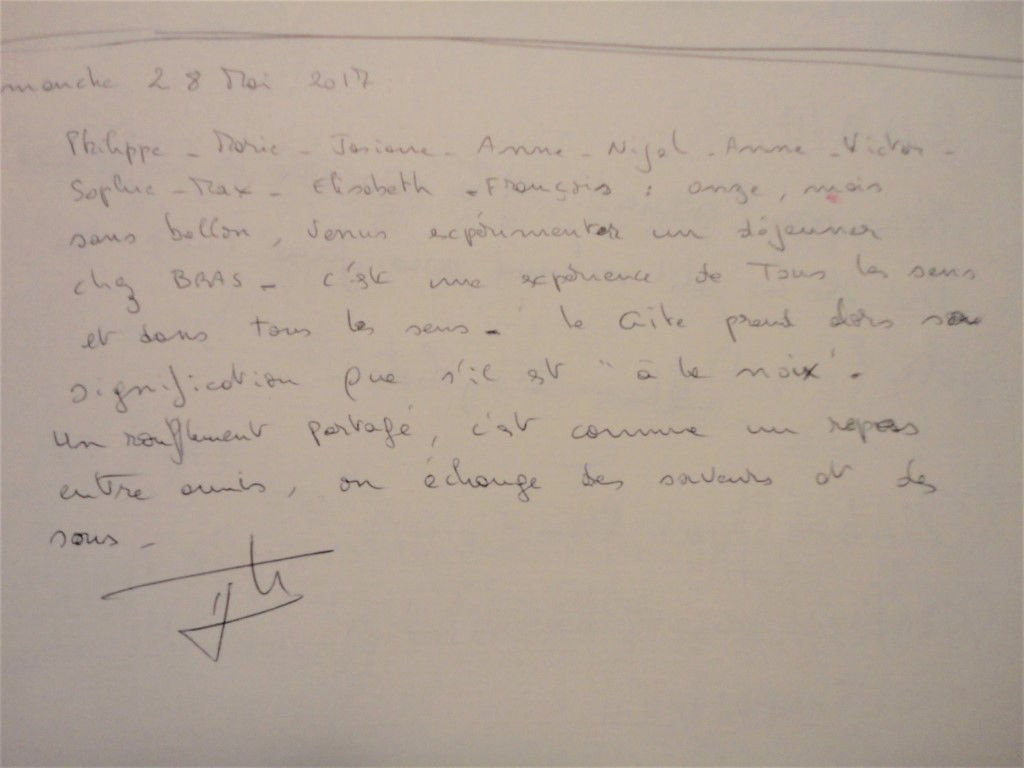 manche 28 Mai 2017
Philippe - Marie - Josiane - Anne - Nigel - Anne - Victor -
Sophie - Max - Elisabeth - François : onze, mais
sans ballon, venus expérimenter un déjeuner
chez BRAS - c'est une expérience de Tous les sens
et dans tous les sens - le Gîte prend alors sa
signification que s'il est "à la noix".
Un ronflement partagé, c'est comme un repas
entre amis, on échange des saveurs et des
sons -